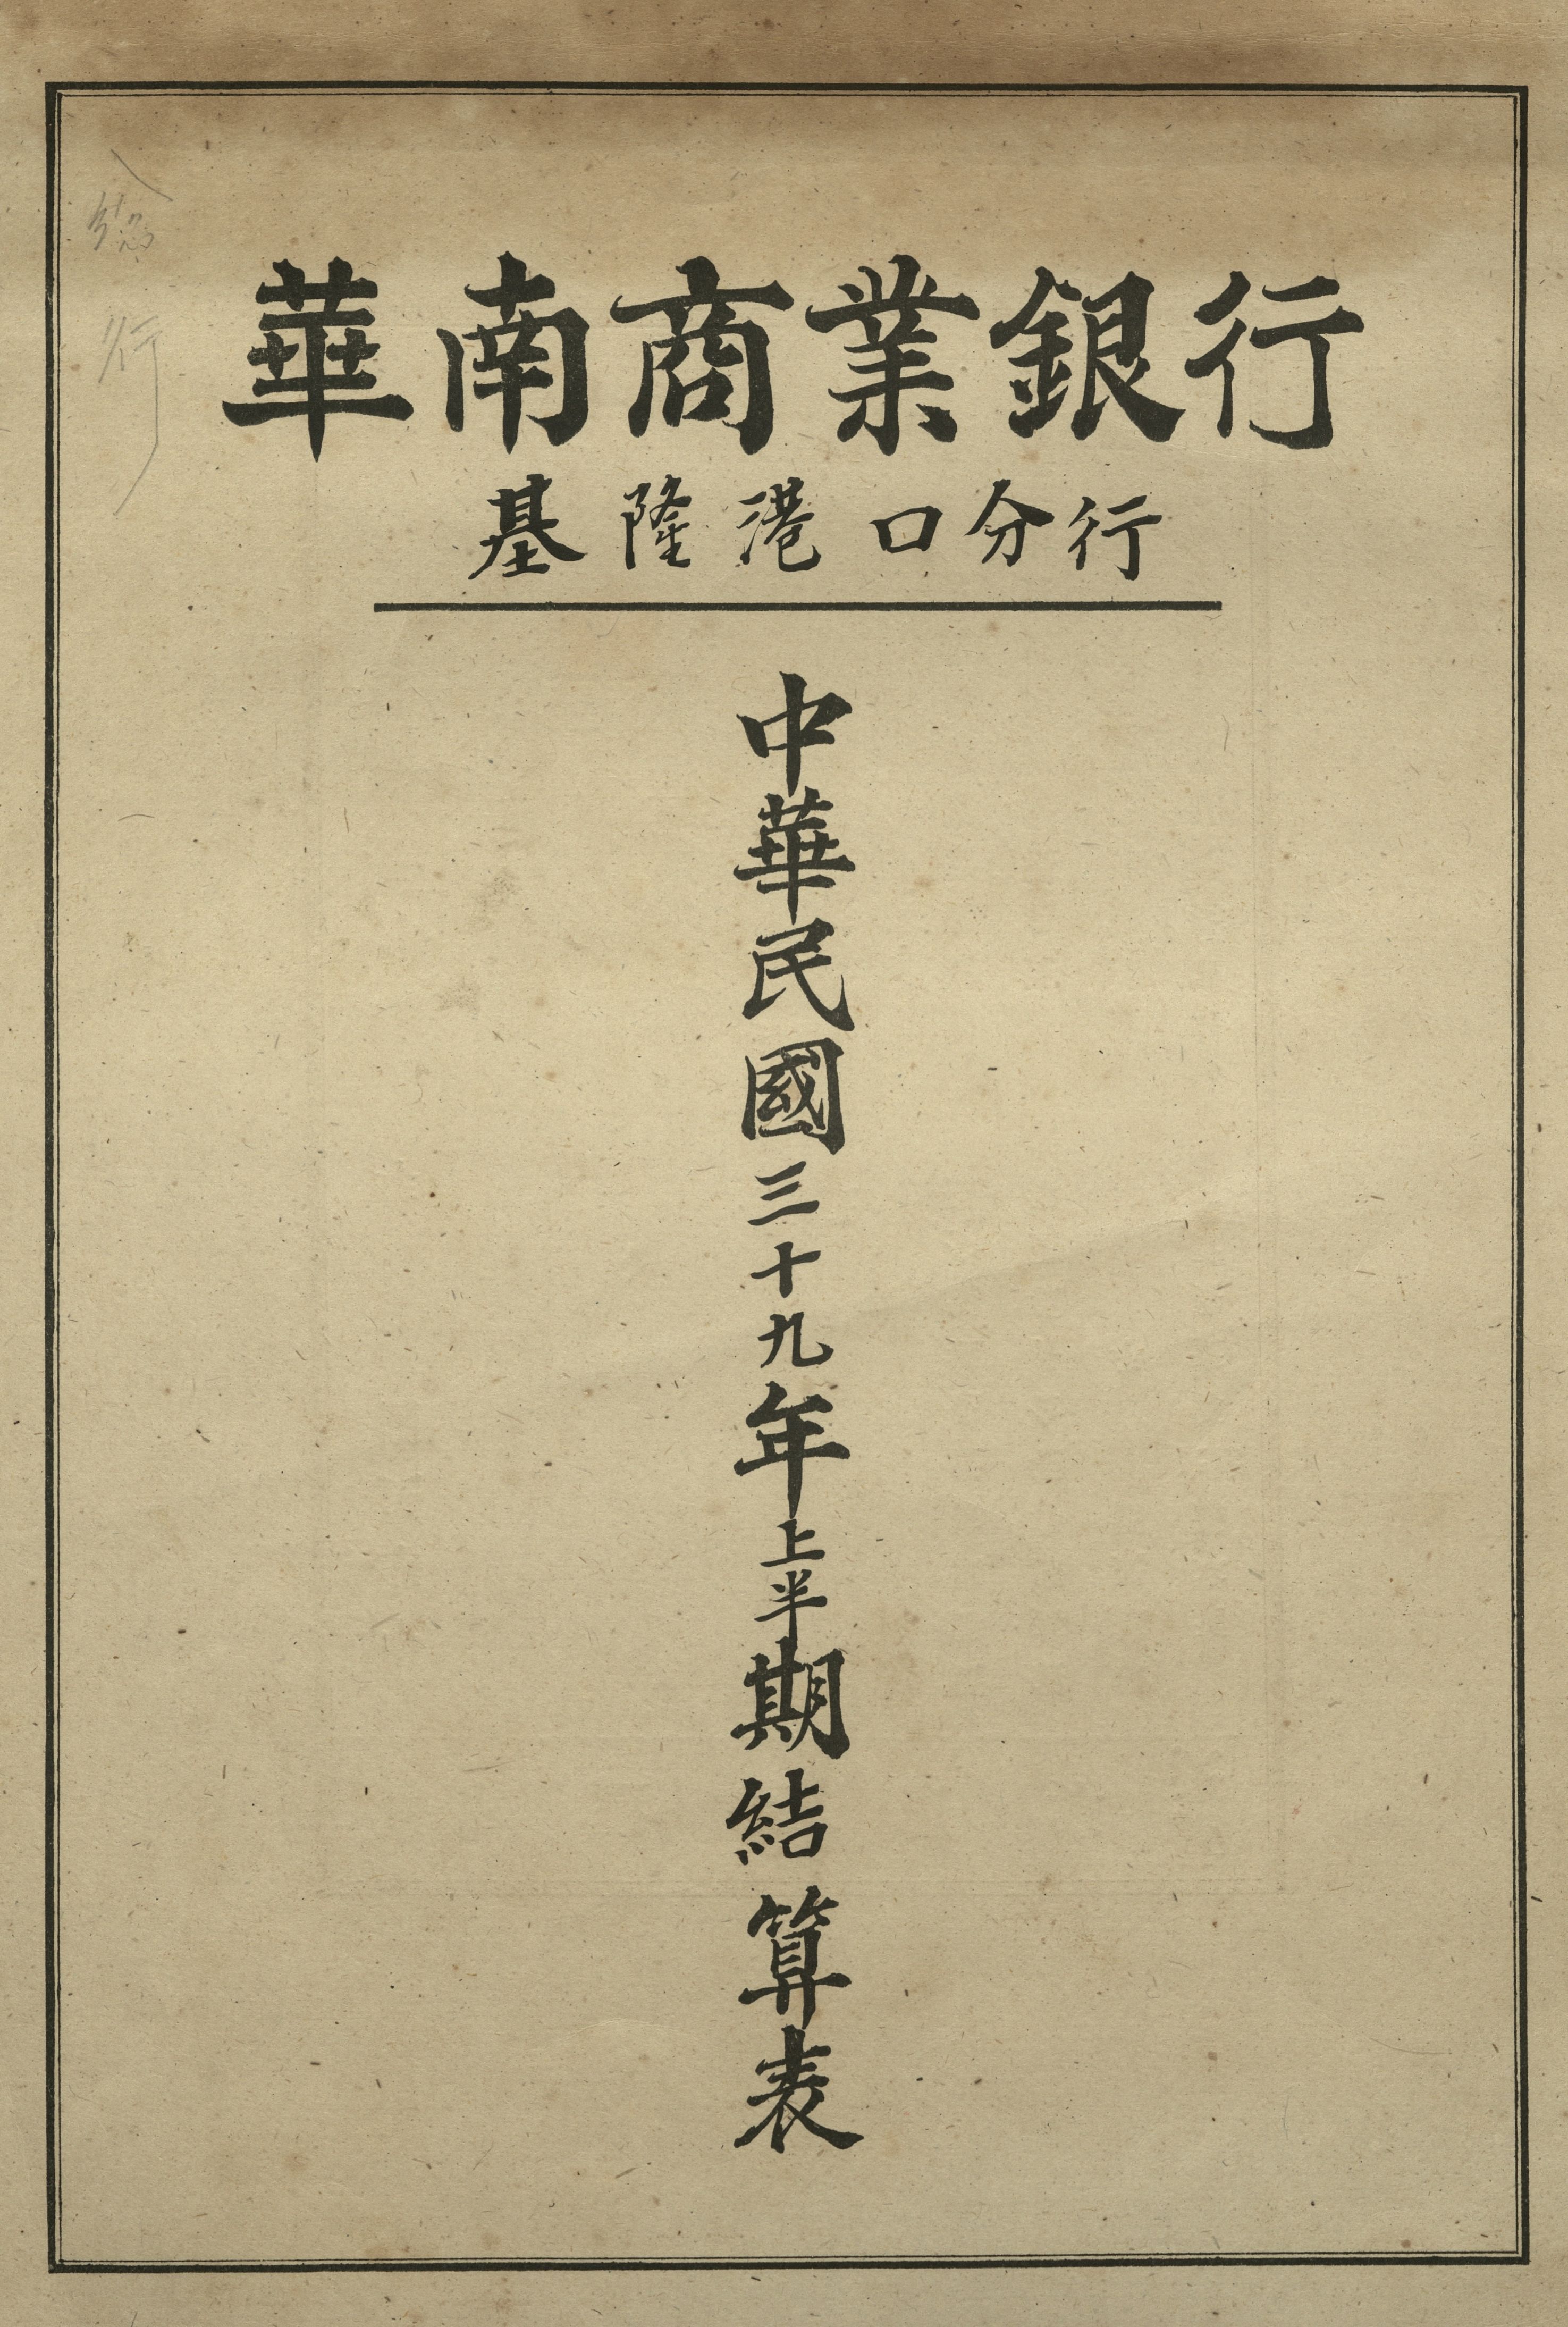 華南商業銀行
基隆港口分行
中華民國三十九年上半期結算表
總行